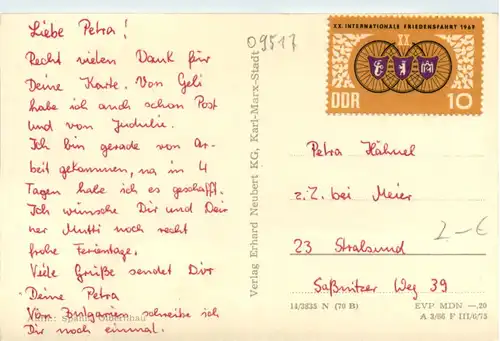 Liebe Petra!
Recht vielen Dank für
Deine Karte. Von Geli
habe ich auch schon Post
und von
Ich bin gerade von Ar-
beit gekommen, na in 4
Tagen habe ich es geschafft.
Ich wünsche Dir und Dei-
ner Mutti noch recht
frohe Ferientage.
Viele Grüße sendet Dir
Deine Petra
Von Bulgarien schreibe ich
Dir noch einmal.
Verlag Erhard Neubert KG, Karl-Marx-Stadt
09517
XX. INTERNATIONALE FRIEDENSFAHRT 1967
XX
DDR 10
Petra Hähnel
z.Z. bei Meier
23 Stralsund
Saßnitzer Weg 39
2-€
14/3835 N (70 B)
EVP MDN -,20
A 3/66 F III/6/75